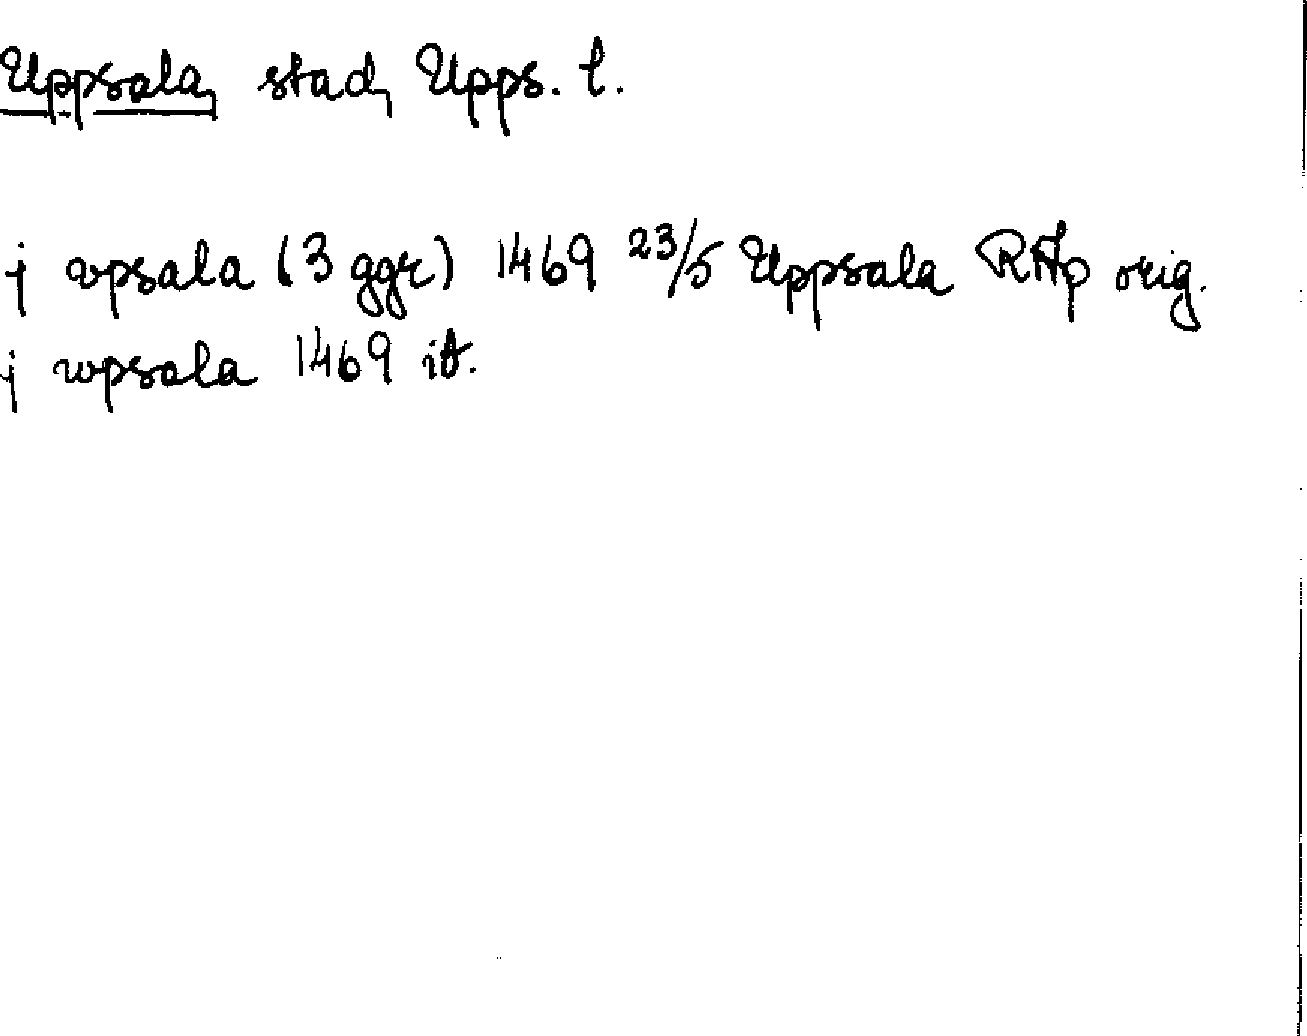 Uppsala, stad, Upps. l.
j vpsala (3 ggr) 1469 23/5 Uppsala RAp orig.
j wpsala 1469 it.